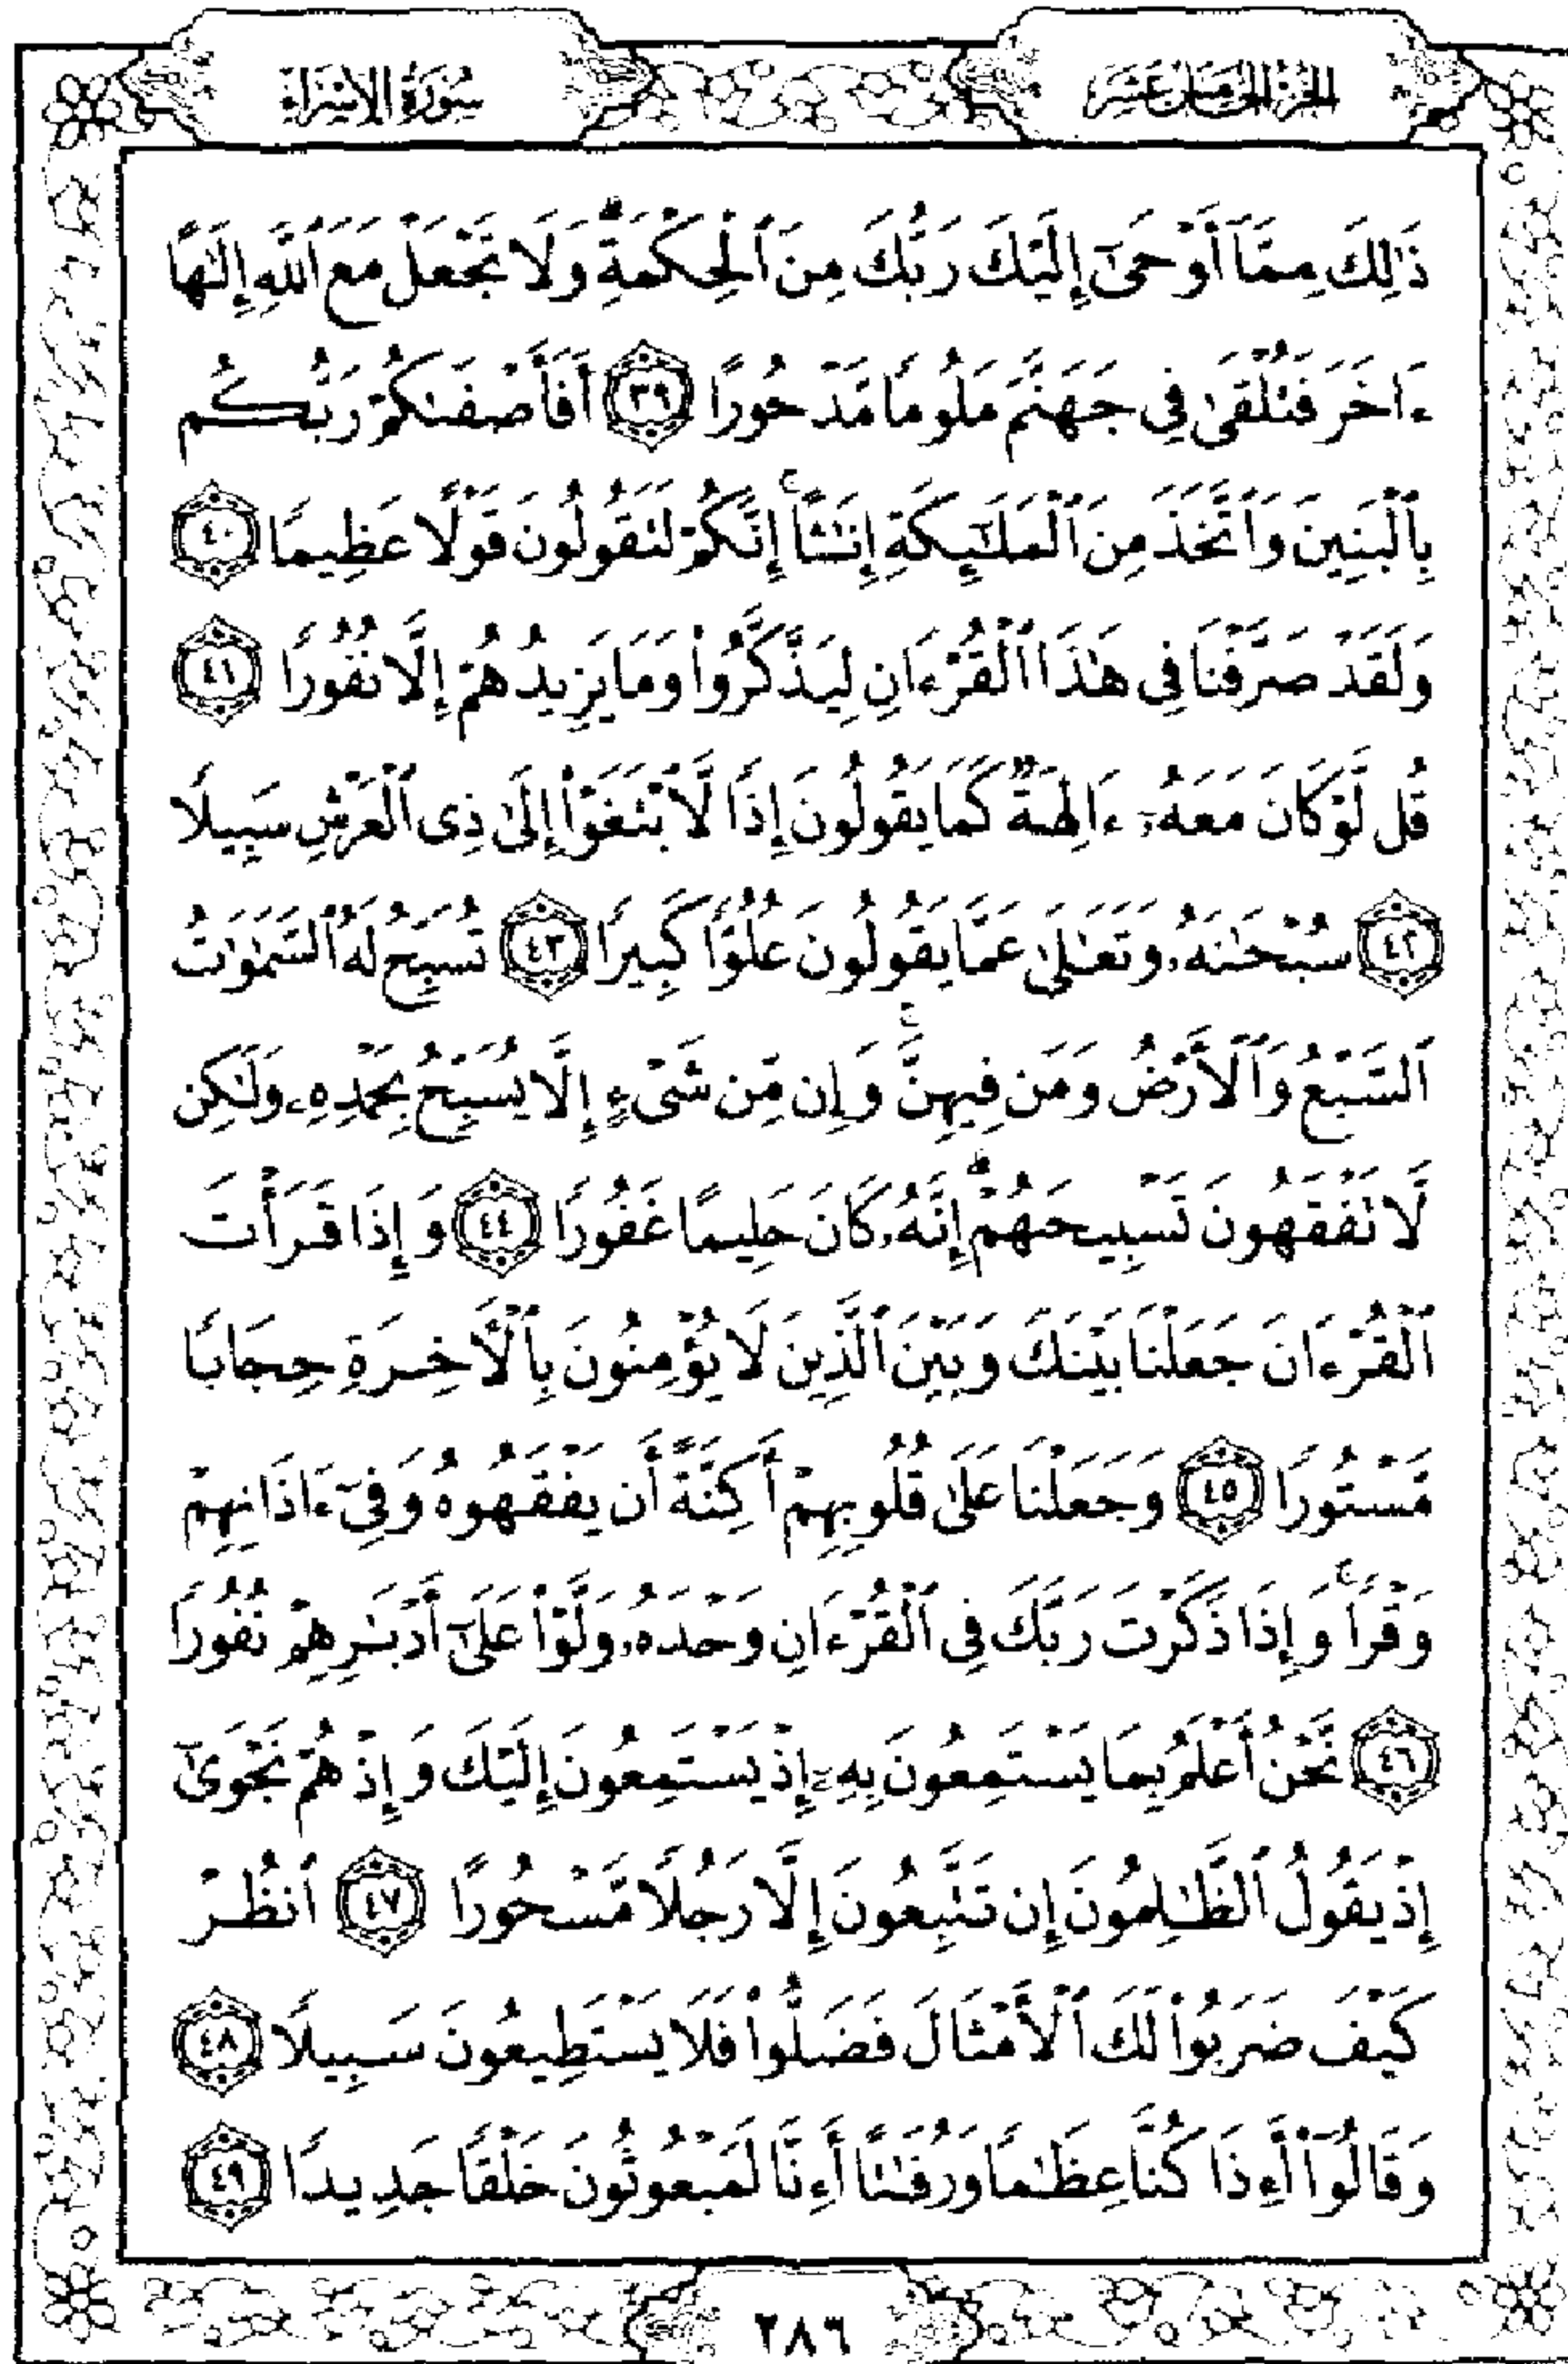 الجزء الخامس عشر
سورة الإسراء
ذَٰلِكَ مِمَّآ أَوْحَىٰٓ إِلَيْكَ رَبُّكَ مِنَ ٱلْحِكْمَةِ ۗ وَلَا تَجْعَلْ مَعَ ٱللَّهِ إِلَٰهًا
ءَاخَرَ فَتُلْقَىٰ فِى جَهَنَّمَ مَلُومًا مَّدْحُورًا ﴿٣٩﴾ أَفَأَصْفَىٰكُمْ رَبُّكُم
بِٱلْبَنِينَ وَٱتَّخَذَ مِنَ ٱلْمَلَٰٓئِكَةِ إِنَٰثًا ۚ إِنَّكُمْ لَتَقُولُونَ قَوْلًا عَظِيمًا ﴿٤٠﴾
وَلَقَدْ صَرَّفْنَا فِى هَٰذَا ٱلْقُرْءَانِ لِيَذَّكَّرُوا۟ وَمَا يَزِيدُهُمْ إِلَّا نُفُورًا ﴿٤١﴾
قُل لَّوْ كَانَ مَعَهُۥٓ ءَالِهَةٌ كَمَا يَقُولُونَ إِذًا لَّٱبْتَغَوْا۟ إِلَىٰ ذِى ٱلْعَرْشِ سَبِيلًا
﴿٤٢﴾ سُبْحَٰنَهُۥ وَتَعَٰلَىٰ عَمَّا يَقُولُونَ عُلُوًّا كَبِيرًا ﴿٤٣﴾ تُسَبِّحُ لَهُ ٱلسَّمَٰوَٰتُ
ٱلسَّبْعُ وَٱلْأَرْضُ وَمَن فِيهِنَّ ۚ وَإِن مِّن شَىْءٍ إِلَّا يُسَبِّحُ بِحَمْدِهِۦ وَلَٰكِن
لَّا تَفْقَهُونَ تَسْبِيحَهُمْ ۗ إِنَّهُۥ كَانَ حَلِيمًا غَفُورًا ﴿٤٤﴾ وَإِذَا قَرَأْتَ
ٱلْقُرْءَانَ جَعَلْنَا بَيْنَكَ وَبَيْنَ ٱلَّذِينَ لَا يُؤْمِنُونَ بِٱلْأَخِرَةِ حِجَابًا
مَّسْتُورًا ﴿٤٥﴾ وَجَعَلْنَا عَلَىٰ قُلُوبِهِمْ أَكِنَّةً أَن يَفْقَهُوهُ وَفِىٓ ءَاذَانِهِمْ
وَقْرًا ۚ وَإِذَا ذَكَرْتَ رَبَّكَ فِى ٱلْقُرْءَانِ وَحْدَهُۥ وَلَّوْا۟ عَلَىٰٓ أَدْبَٰرِهِمْ نُفُورًا
﴿٤٦﴾ نَّحْنُ أَعْلَمُ بِمَا يَسْتَمِعُونَ بِهِۦٓ إِذْ يَسْتَمِعُونَ إِلَيْكَ وَإِذْ هُمْ نَجْوَىٰٓ
إِذْ يَقُولُ ٱلظَّٰلِمُونَ إِن تَتَّبِعُونَ إِلَّا رَجُلًا مَّسْحُورًا ﴿٤٧﴾ ٱنظُرْ
كَيْفَ ضَرَبُوا۟ لَكَ ٱلْأَمْثَالَ فَضَلُّوا۟ فَلَا يَسْتَطِيعُونَ سَبِيلًا ﴿٤٨﴾
وَقَالُوٓا۟ أَءِذَا كُنَّا عِظَٰمًا وَرُفَٰتًا أَءِنَّا لَمَبْعُوثُونَ خَلْقًا جَدِيدًا ﴿٤٩﴾
٢٨٦